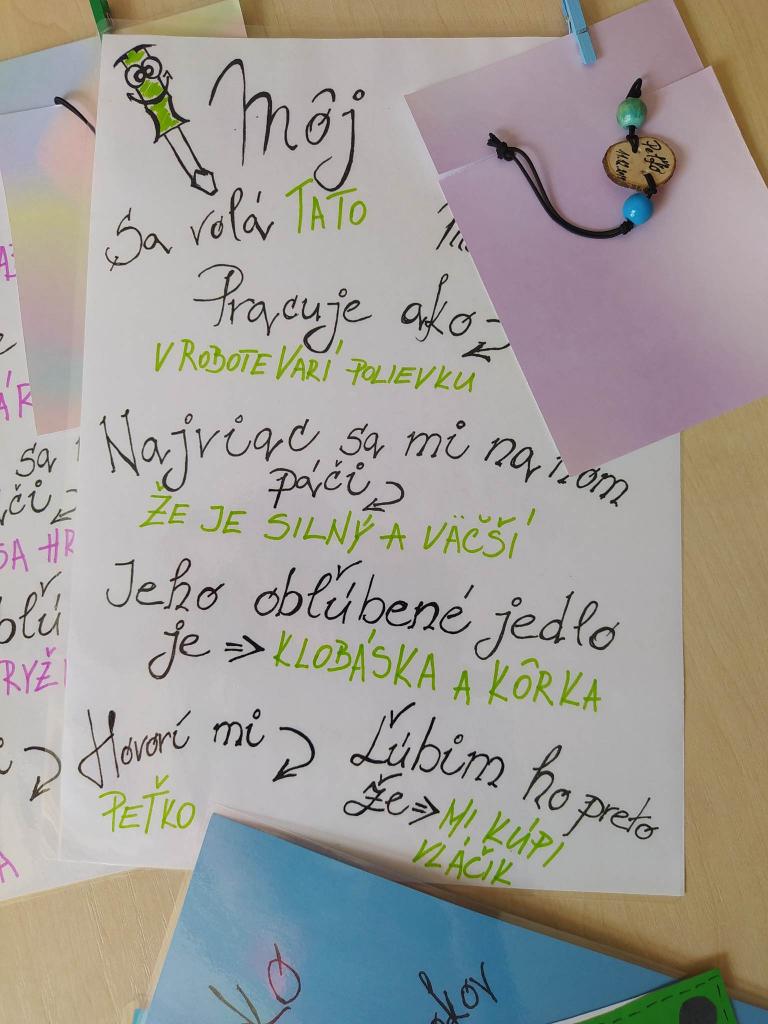 Môj
Sa volá TATO
Pracuje ako
V ROBOTE VARÍ POLIEVKU
Najviac sa mi na ňom
páči
ŽE JE SILNÝ A VÄČŠÍ
Jeho obľúbené jedlo
je => KLOBÁSKA A KÔRKA
Hovorí mi
PEŤKO
Ľúbim ho preto
že => MI KÚPI
VLÁČIK
sa
SA HR